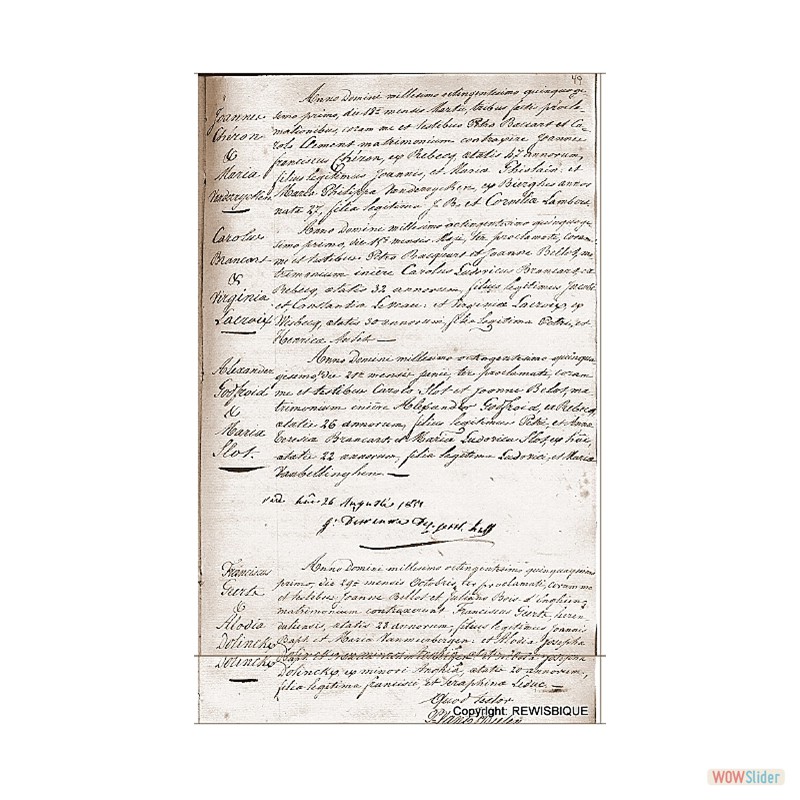 49
Anno Domini millesimo octingentesimo quinquage-
simo primo, die 18ª mensis Martii, tribus factis procla-
mationibus coram me et testibus Petro Bassart et Ca-
rolo Clement matrimonium contraxere Joannes
franciscus Chéron, ex Rebecq, ætatis 47 annorum,
filius legitimus Joannis, et Maria Ghislain: et
Maria Philippa Vandereycken, ex Bierghes annos
nata 27, filia legitima J. B. et Cornelia Lambert
Joannes
Chéron
&
Maria
Vandereycken
Anno Domini millesimo octingentesimo quinquage-
simo primo, die 15ª mensis Maji, ter proclamati, coram
me et testibus Petro Bacquart et Joanne Bellot, ma-
trimonium iniêre Carolus Ludovicus Brancart, ex
Rebecq, ætatis 32 annorum, filius legitimus Jacobi
et Constantia et Virginia Lacroix, ex
Wisbecq, ætatis 30 annorum, filia legitima Petri, et
Henrica
Carolus
Brancart
&
Virginia
Lacroix
Anno Domini millesimo octingentesimo quinqua-
gesimo die mensis junii, ter proclamati, coram
me et testibus Carolo Slot et Joanne Belot, ma-
trimonium iniêre Alexander Godfroid, ex Rebecq,
ætatis 26 annorum, filius legitimus Petri, et Anna
Teresia Brancart: et Maria Ludovica Slot, ex hic,
ætatis 22 annorum, filia legitima Ludovici, et Maria
Vanbellinghen
Alexander
Godfroid
&
Maria
Slot.
26 Augusti 1851
Anno Domini millesimo octingentesimo quinquagesimo
primo, die 29ª mensis Octobris, ter proclamati, coram me
et testibus Joanne Bellot et Juliano Bois d'Enghien,
matrimonium contraxerunt Franciscus Geerts,
ætatis 23 annorum, filius legitimus Joannis
Bapt. et Maria Vanmeerbergen: et Alodia Josepha
Dolinckx, ex minori Anchia, ætatis 20 annorum,
filia legitima francisci, et Seraphina Leduc.
Franciscus
Geerts
&
Alodia
Dolinckx
Dolinckx
Quod testor
Copyright: REWISBIQUE
WOWSlider